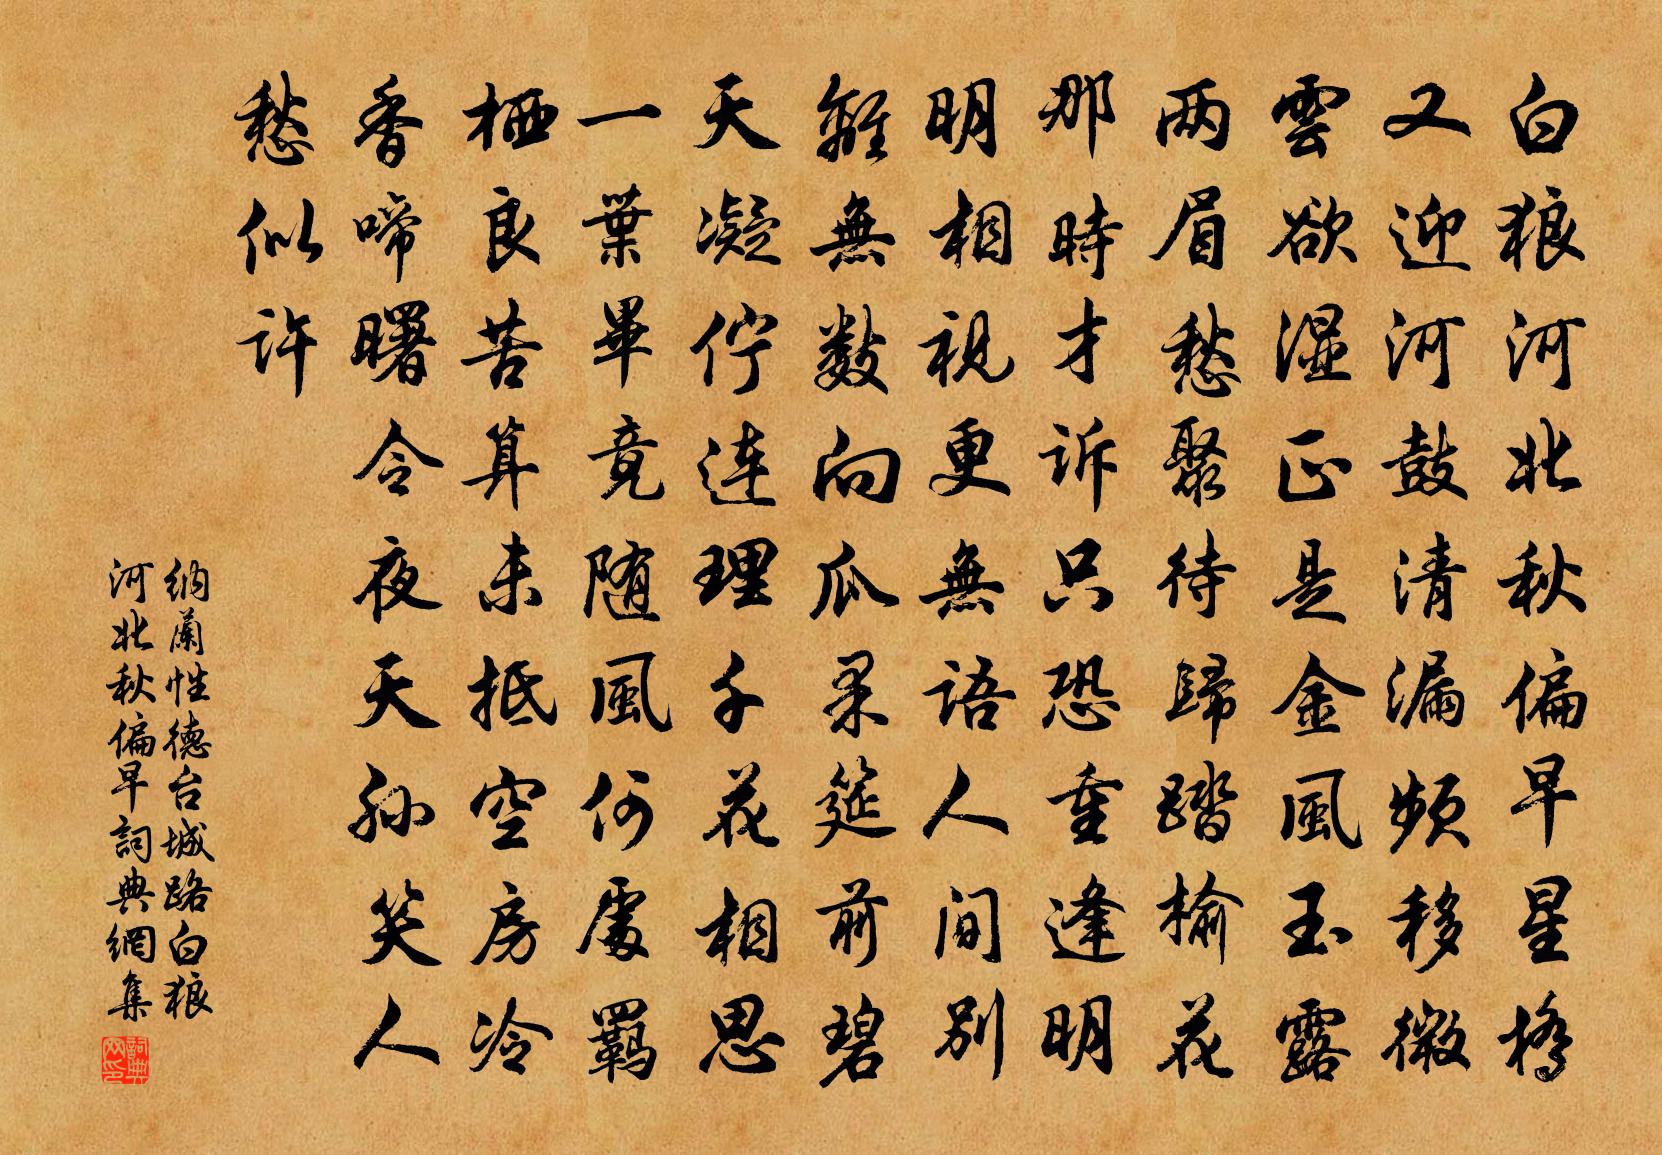 白狼河北秋偏早星橋
又迎河鼓清漏頻移微
雲欲湿正是金風玉露
两眉愁聚待歸踏榆花
那時才訴只恐重逢明
明相視更無語人间别
離無數向瓜果筵前碧
天凝佇连理千花相思
一葉畢竟随風何處羁
栖良苦算未抵空房冷
香啼曙令夜天孙笑人
愁似许
纳蘭性德台城路白狼
河北秋偏早詞典網集
詞典网印